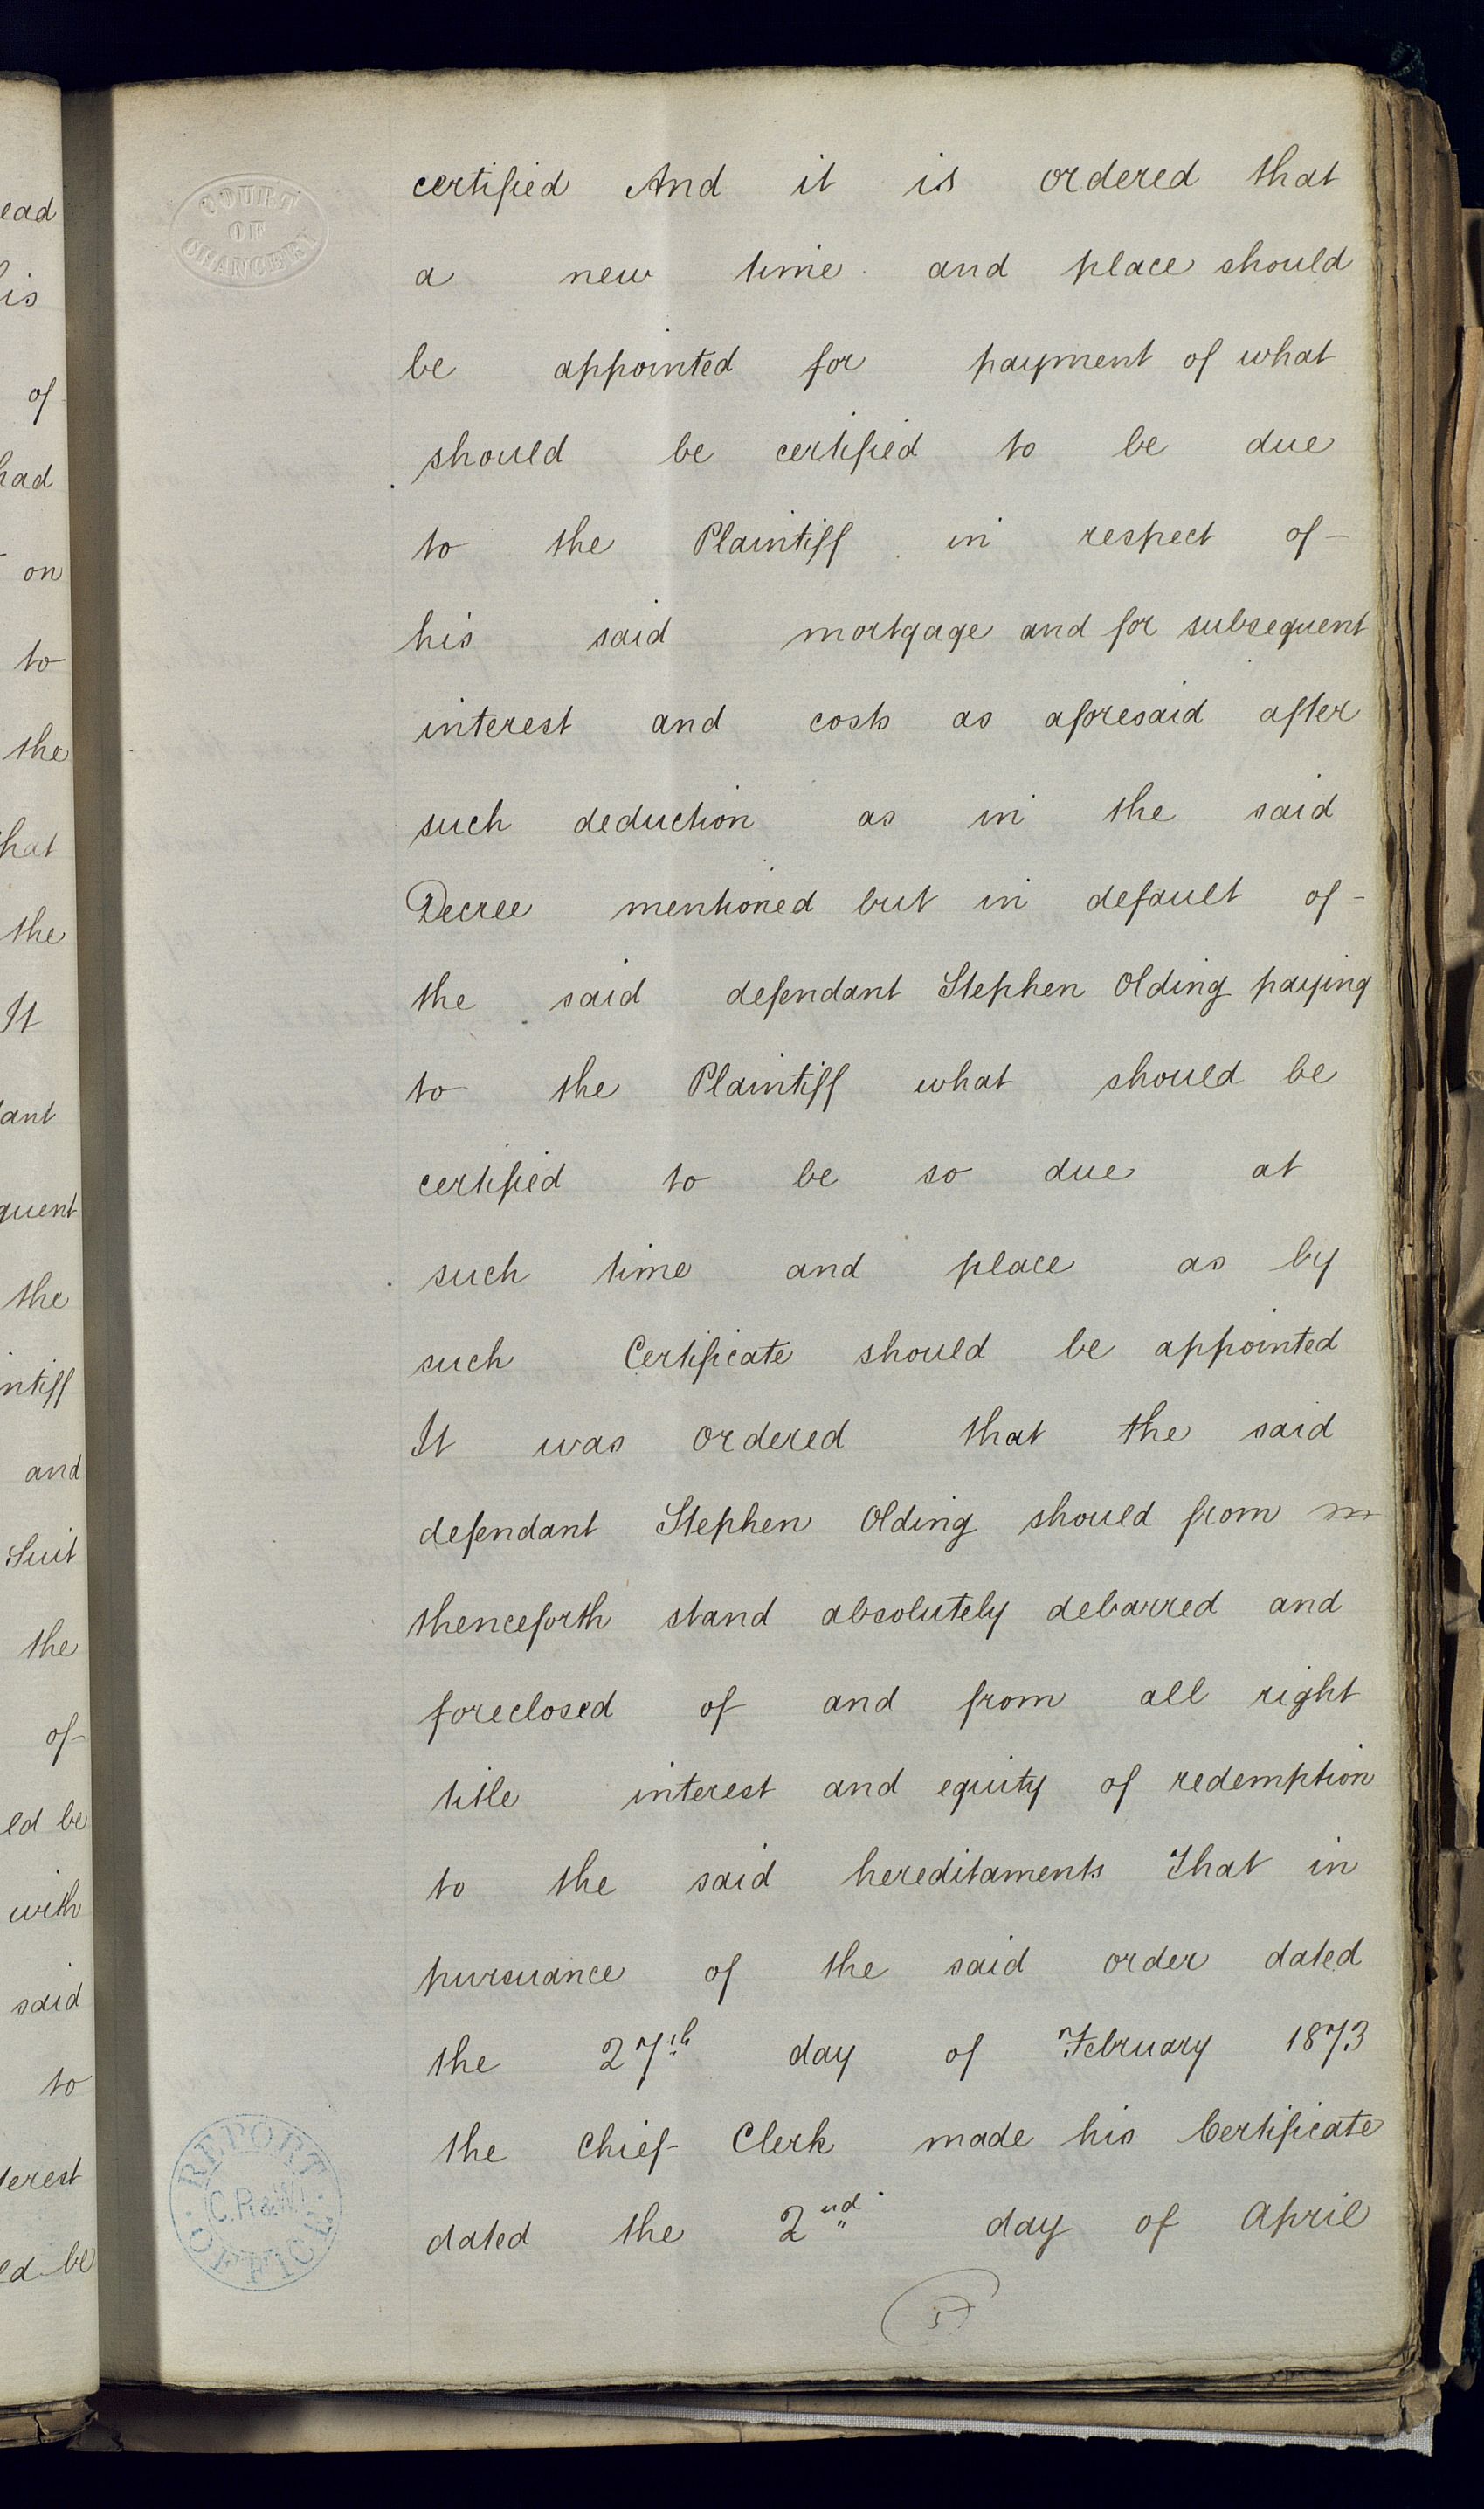 ead
is
of
had
on
to
the
hat
the
It
ant
quent
the
ntiff
and
Suit
the
of
ld be
with
said
to
terest
ed be
COURT
OF
CHANCERY
certified And it is ordered that
a new time and place should
be appointed for payment of what
should be certified to be due
to the Plaintiff in respect of
his said mortgage and for subsequent
interest and costs as aforesaid after
such deduction as in the said
Decree mentioned but in default of
the said defendant Stephen Olding paying
to the Plaintiff what should be
certified to be so due at
such time and place as by
such Certificate should be appointed
It was ordered that the said
defendant Stephen Olding should from
thenceforth stand absolutely debarred and
foreclosed of and from all right
title interest and equity of redemption
to the said hereditaments That in
pursuance of the said order dated
the 27th day of February 1873
the Chief Clerk made his Certificate
dated the 2nd day of April
REPORT
C.R&W.
OFFICE
5